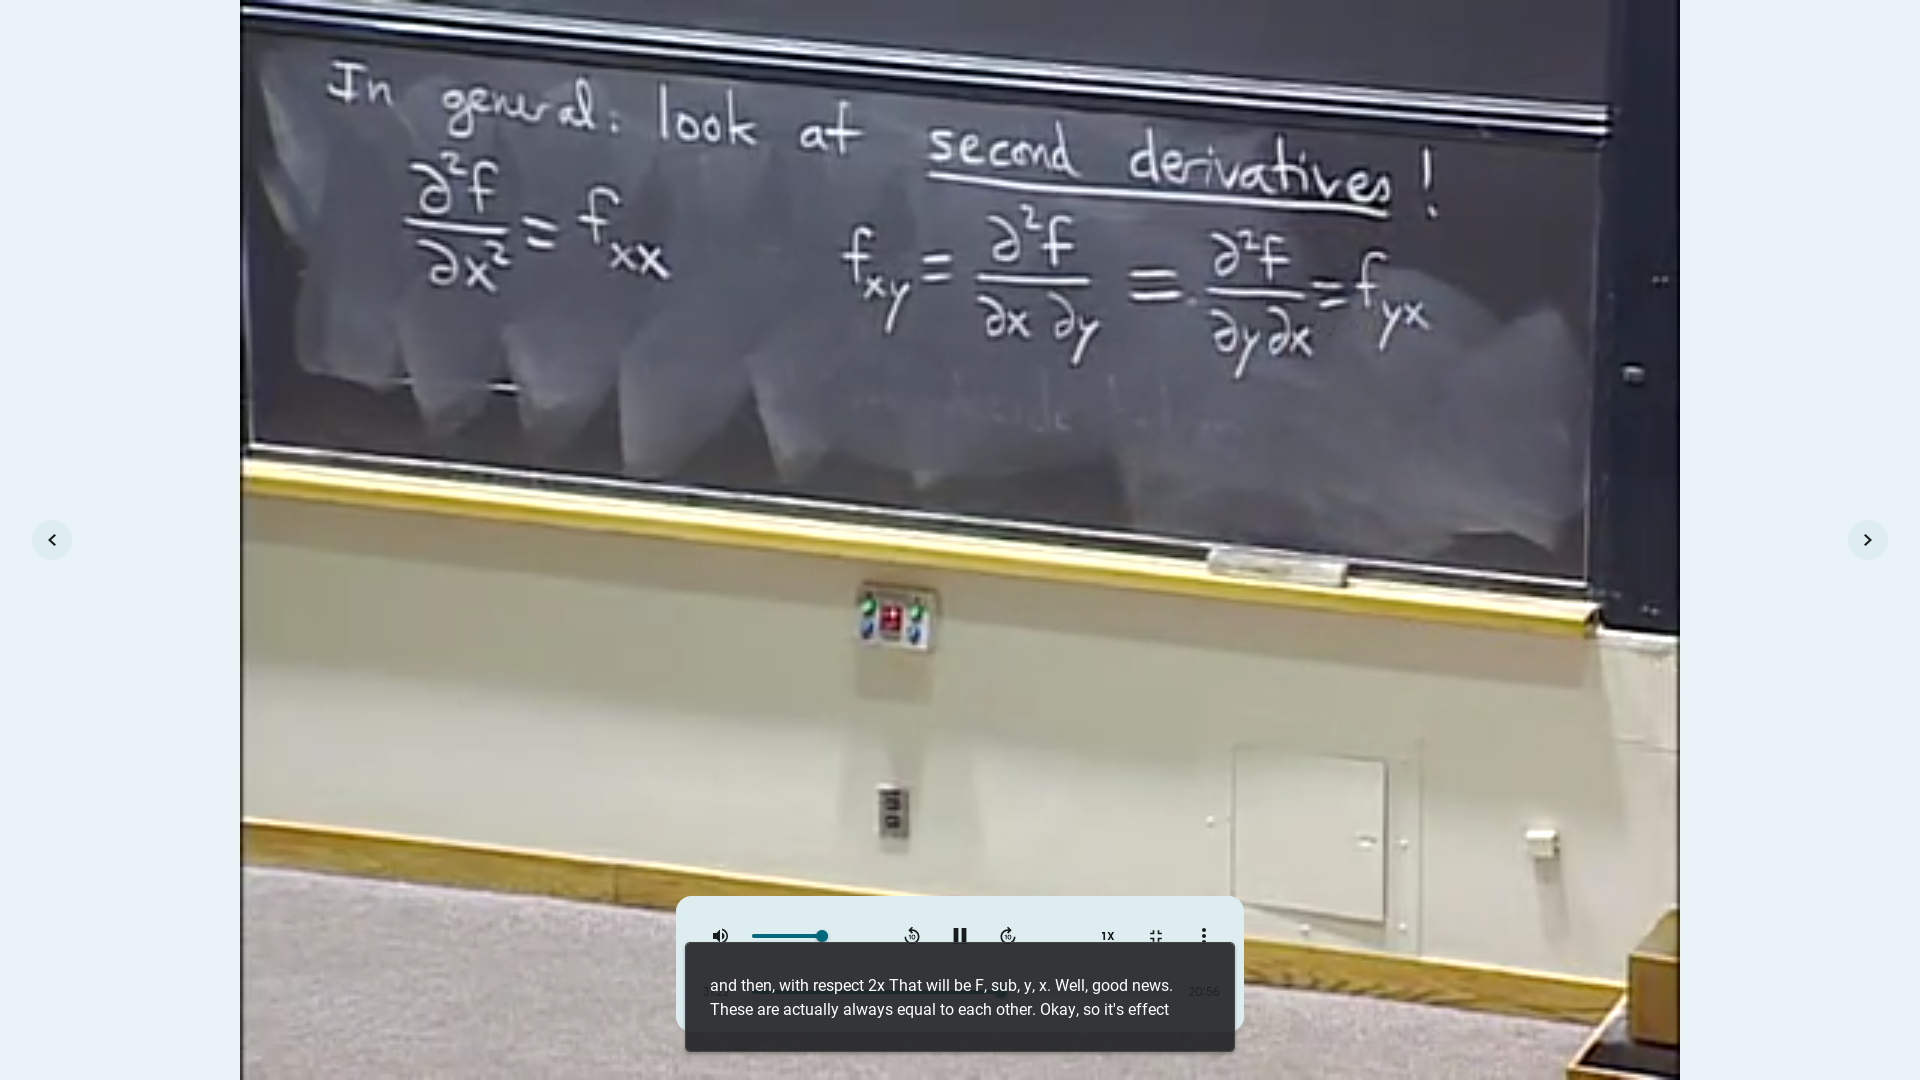 In general: look at second derivatives!
∂²f/∂x² = f_xx    f_xy = ∂²f/∂x∂y = ∂²f/∂y∂x = f_yx
10
10
1X
and then, with respect 2x That will be F, sub, y, x. Well, good news.
20:56
These are actually always equal to each other. Okay, so it's effect